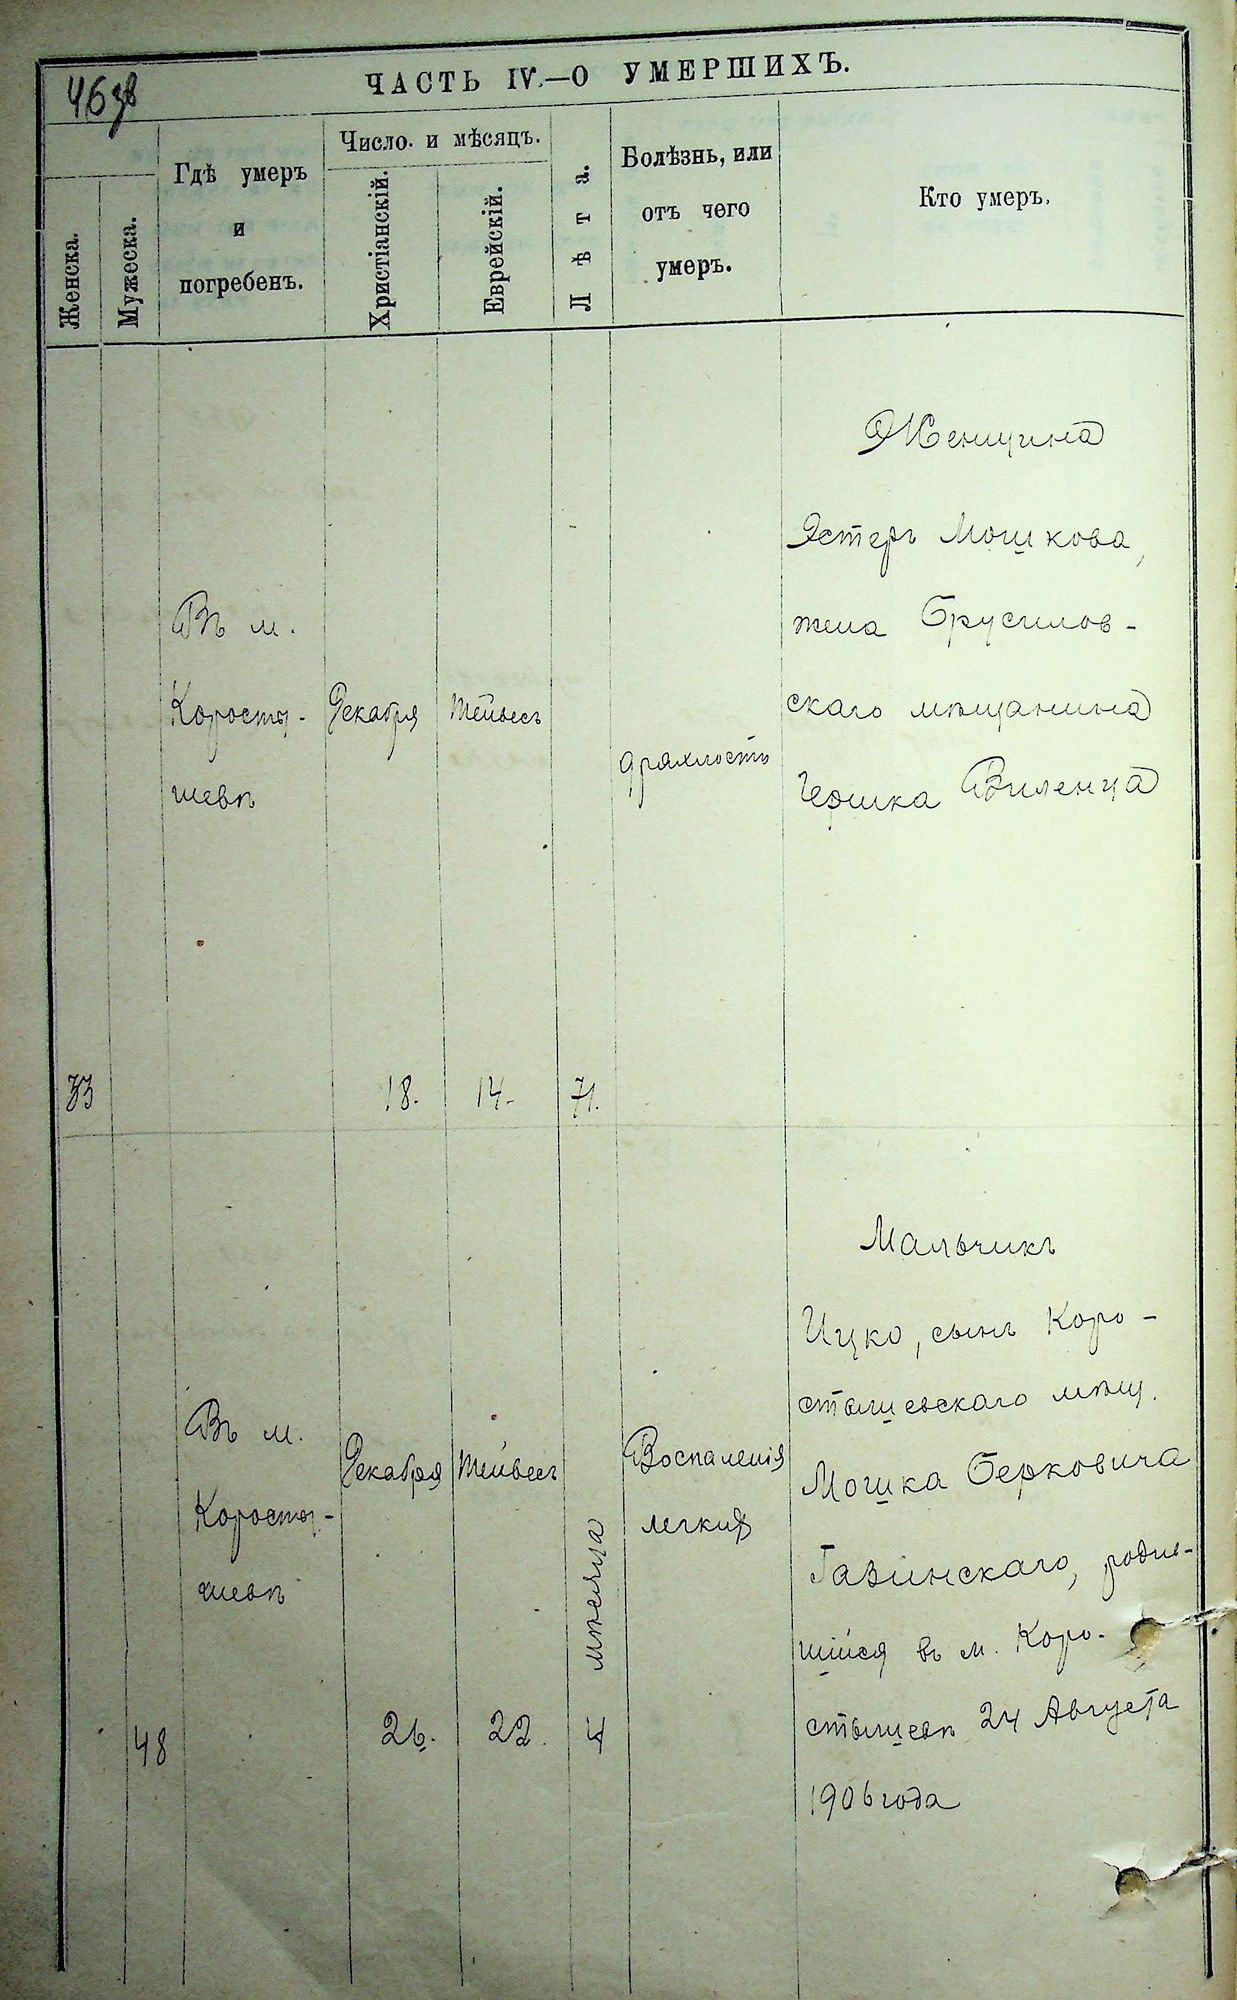 46 зв
ЧАСТЬ IV.—О УМЕРШИХЪ.
Женска.
Мужеска.
Гдѣ умеръ
и
погребенъ.
Число. и мѣсяцъ.
Христіанскій.
Еврейскій.
Лѣта.
Болѣзнь, или
отъ чего
умеръ.
Кто умеръ.
33
Въ м.
Коросты-
шевѣ
Декабря
18.
Тейвесъ
14.
71.
дряхлость
Женщина
Эстеръ Мошкова,
жена Брусилов-
скаго мѣщанина
Гершка Виленца
48
Въ м.
Коросты-
шевѣ
Декабря
26.
Тейвесъ
22.
мѣсяца
Воспаленія
легкихъ
Мальчикъ
Ицко, сынъ Коро-
стышевскаго мѣщ.
Мошка Берковича
родив-
шійся въ м. Коро-
стышевѣ 24 Августа
1906 года